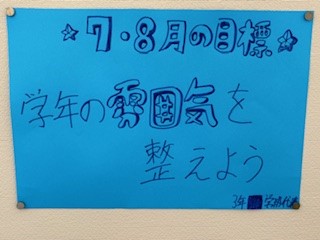 ☆7・8月の目標☆
学年の雰囲気を
整えよう
3年 学級代